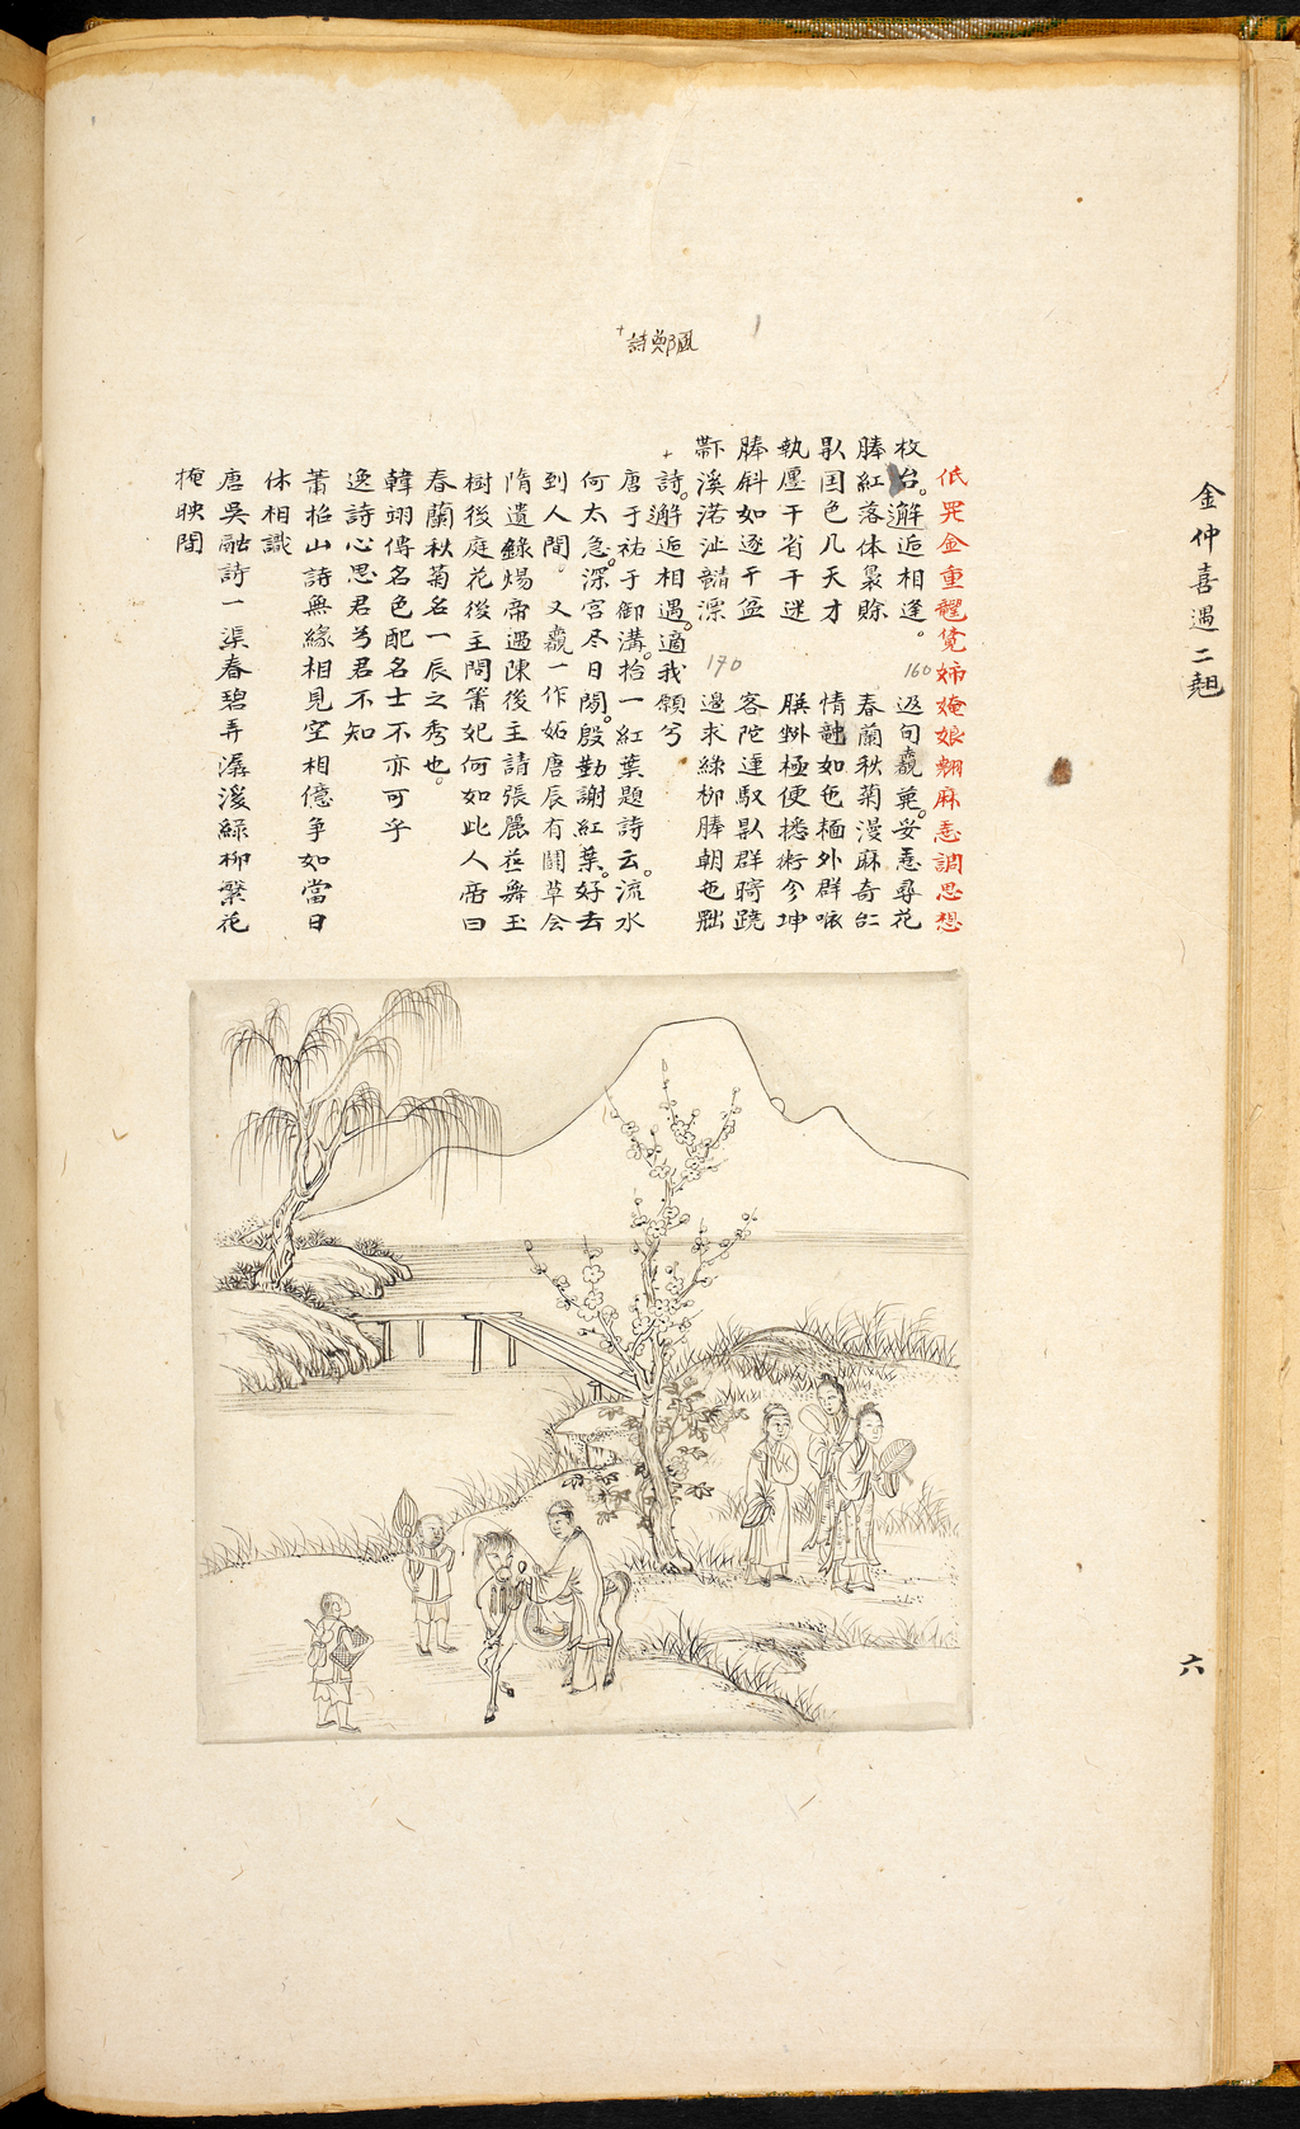 金仲喜遇二翹
六
詩鄭風
低 金重 覓姉媕娘翹麻 調思想
枚台。邂逅相逢。
160
返旬 妥 尋花
𣋚紅落体裊賒
春蘭秋菊漫麻奇𠄩
𠊛国色几天才
情 如㐌𩈘外群
執 干省干迷
極便 術今坤
𣋚斜如逐干盆
客陀 馭𠊛群
𨑜溪渃沚 漂
170
邊求絲柳𣋚朝㐌
詩。邂逅相遇。適我願兮
唐于祐于御溝。拾一紅葉題詩云。流水
何太急。深宮尽日閑。殷勤謝紅葉。好去
到人間。又 一作妬唐辰有鬪草会
隋遺錄煬帝遇陳後主請張麗華舞玉
樹後庭花後主問簫妃何如此人帝曰
春蘭秋菊名一辰之秀也。
韓翊傳名色配名士不亦可乎
逸詩心思君兮君不知
蕭柗山詩無緣相見空相億爭如當日
休相識
唐吳融詩一渠春碧弄潺湲綠柳繁花
掩映間